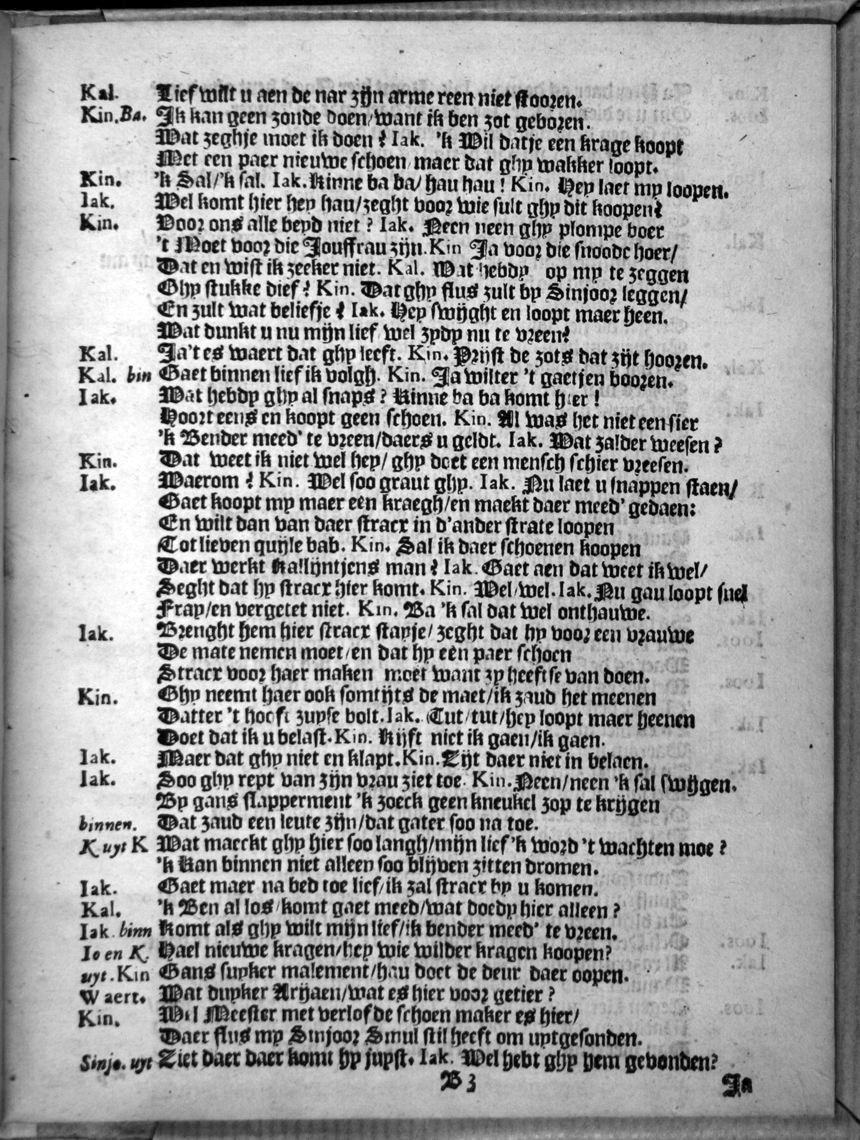 Kal. Lief wilt u aen de nar zijn arme reen niet stooren.
Kin.Ba. Ik kan geen zonde doen/want ik ben zot geboren.
Wat zeghje moet ik doen? Iak. 'k Wil datje een krage koopt
Met een paer nieuwe schoen/maer dat ghy wakker loopt.
Kin. 'k Sal/'k sal. Iak. Kinne ba ba/hau hau! Kin. Hey laet my loopen.
Iak. Wel komt hier hey hau/zeght voor wie sult ghy dit koopen?
Kin. Voor ons alle beyd niet? Iak. Neen neen ghy plompe boer
't Moet voor die Jouffrau zijn. Kin Ja voor die snoode hoer/
Dat en wist ik zeeker niet. Kal. Wat hebdy op my te zeggen
Ghy stukke dief? Kin. Dat ghy flus zult by Sinjoor leggen/
En zult wat beliefje? Iak. Hey swijght en loopt maer heen.
Wat dunkt u nu mijn lief wel zydy nu te vreen?
Kal. Ja't es waert dat ghy leeft. Kin. Prijst de zots dat zijt hooren.
Kal. bin Gaet binnen lief ik volgh. Kin. Ja wilter 't gaetjen booren.
Iak. Wat hebdy ghy al snaps? Kinne ba ba komt hier!
Hoort eens en koopt geen schoen. Kin. Al was het niet een sier
'k Bender meed' te vreen/daers u geldt. Iak. Wat zalder weesen?
Kin. Dat weet ik niet wel hey/ghy doet een mensch schier vreesen.
Iak. Waerom? Kin. Wel soo graut ghy. Iak. Nu laet u snappen staen/
Gaet koopt my maer een kraegh/en maekt daer meed' gedaen:
En wilt dan van daer stracx in d'ander strate loopen
Tot lieven quijle bab. Kin. Sal ik daer schoenen koopen
Daer werkt Kallijntjens man? Iak. Gaet aen dat weet ik wel/
Seght dat hy stracx hier komt. Kin. Wel/wel. Iak. Nu gau loopt snel
Fray/en vergetet niet. Kin. Ba 'k sal dat wel onthauwe.
Iak. Brenght hem hier stracx stapje/zeght dat hy voor een vrauwe
De mate nemen moet/en dat hy een paer schoen
Stracx voor haer maken moet want zy heeftse van doen.
Kin. Ghy neemt haer ook somtijts de maet/ik zaud het meenen
Datter 't hooft zuyse bolt. Iak. Tut/tut/hey loopt maer heenen
Doet dat ik u belast. Kin. Kijft niet ik gaen/ik gaen.
Iak. Maer dat ghy niet en klapt. Kin. Zijt daer niet in belaen.
Iak. Soo ghy rept van zijn vrau ziet toe. Kin. Neen/neen 'k sal swijgen.
By gans slapperment 'k zoeck geen kneukel zop te krijgen
binnen. Dat zaud een leute zijn/dat gater soo na toe.
K uyt K Wat maeckt ghy hier soo langh/mijn lief 'k word 't wachten moe?
'k Kan binnen niet alleen soo blijven zitten dromen.
Iak. Gaet maer na bed toe lief/ik zal stracx by u komen.
Kal. 'k Ben al los/komt gaet meed/wat doedy hier alleen?
Iak. binn Komt als ghy wilt mijn lief/ik bender meed' te vreen.
Io en K. Hael nieuwe kragen/hey wie wilder kragen koopen?
uyt. Kin Gans suyker malement/hau doet de deur daer oopen.
Waert. Wat duyker Arjaen/wat es hier voor getier?
Kin. Wel Meester met verlof de schoen maker es hier/
Daer flus my Sinjoor Smul stil heeft om uytgesonden.
Sinjo. uyt Ziet daer daer komt hy jupst. Iak. Wel hebt ghy hem gevonden?
B 3 Ja